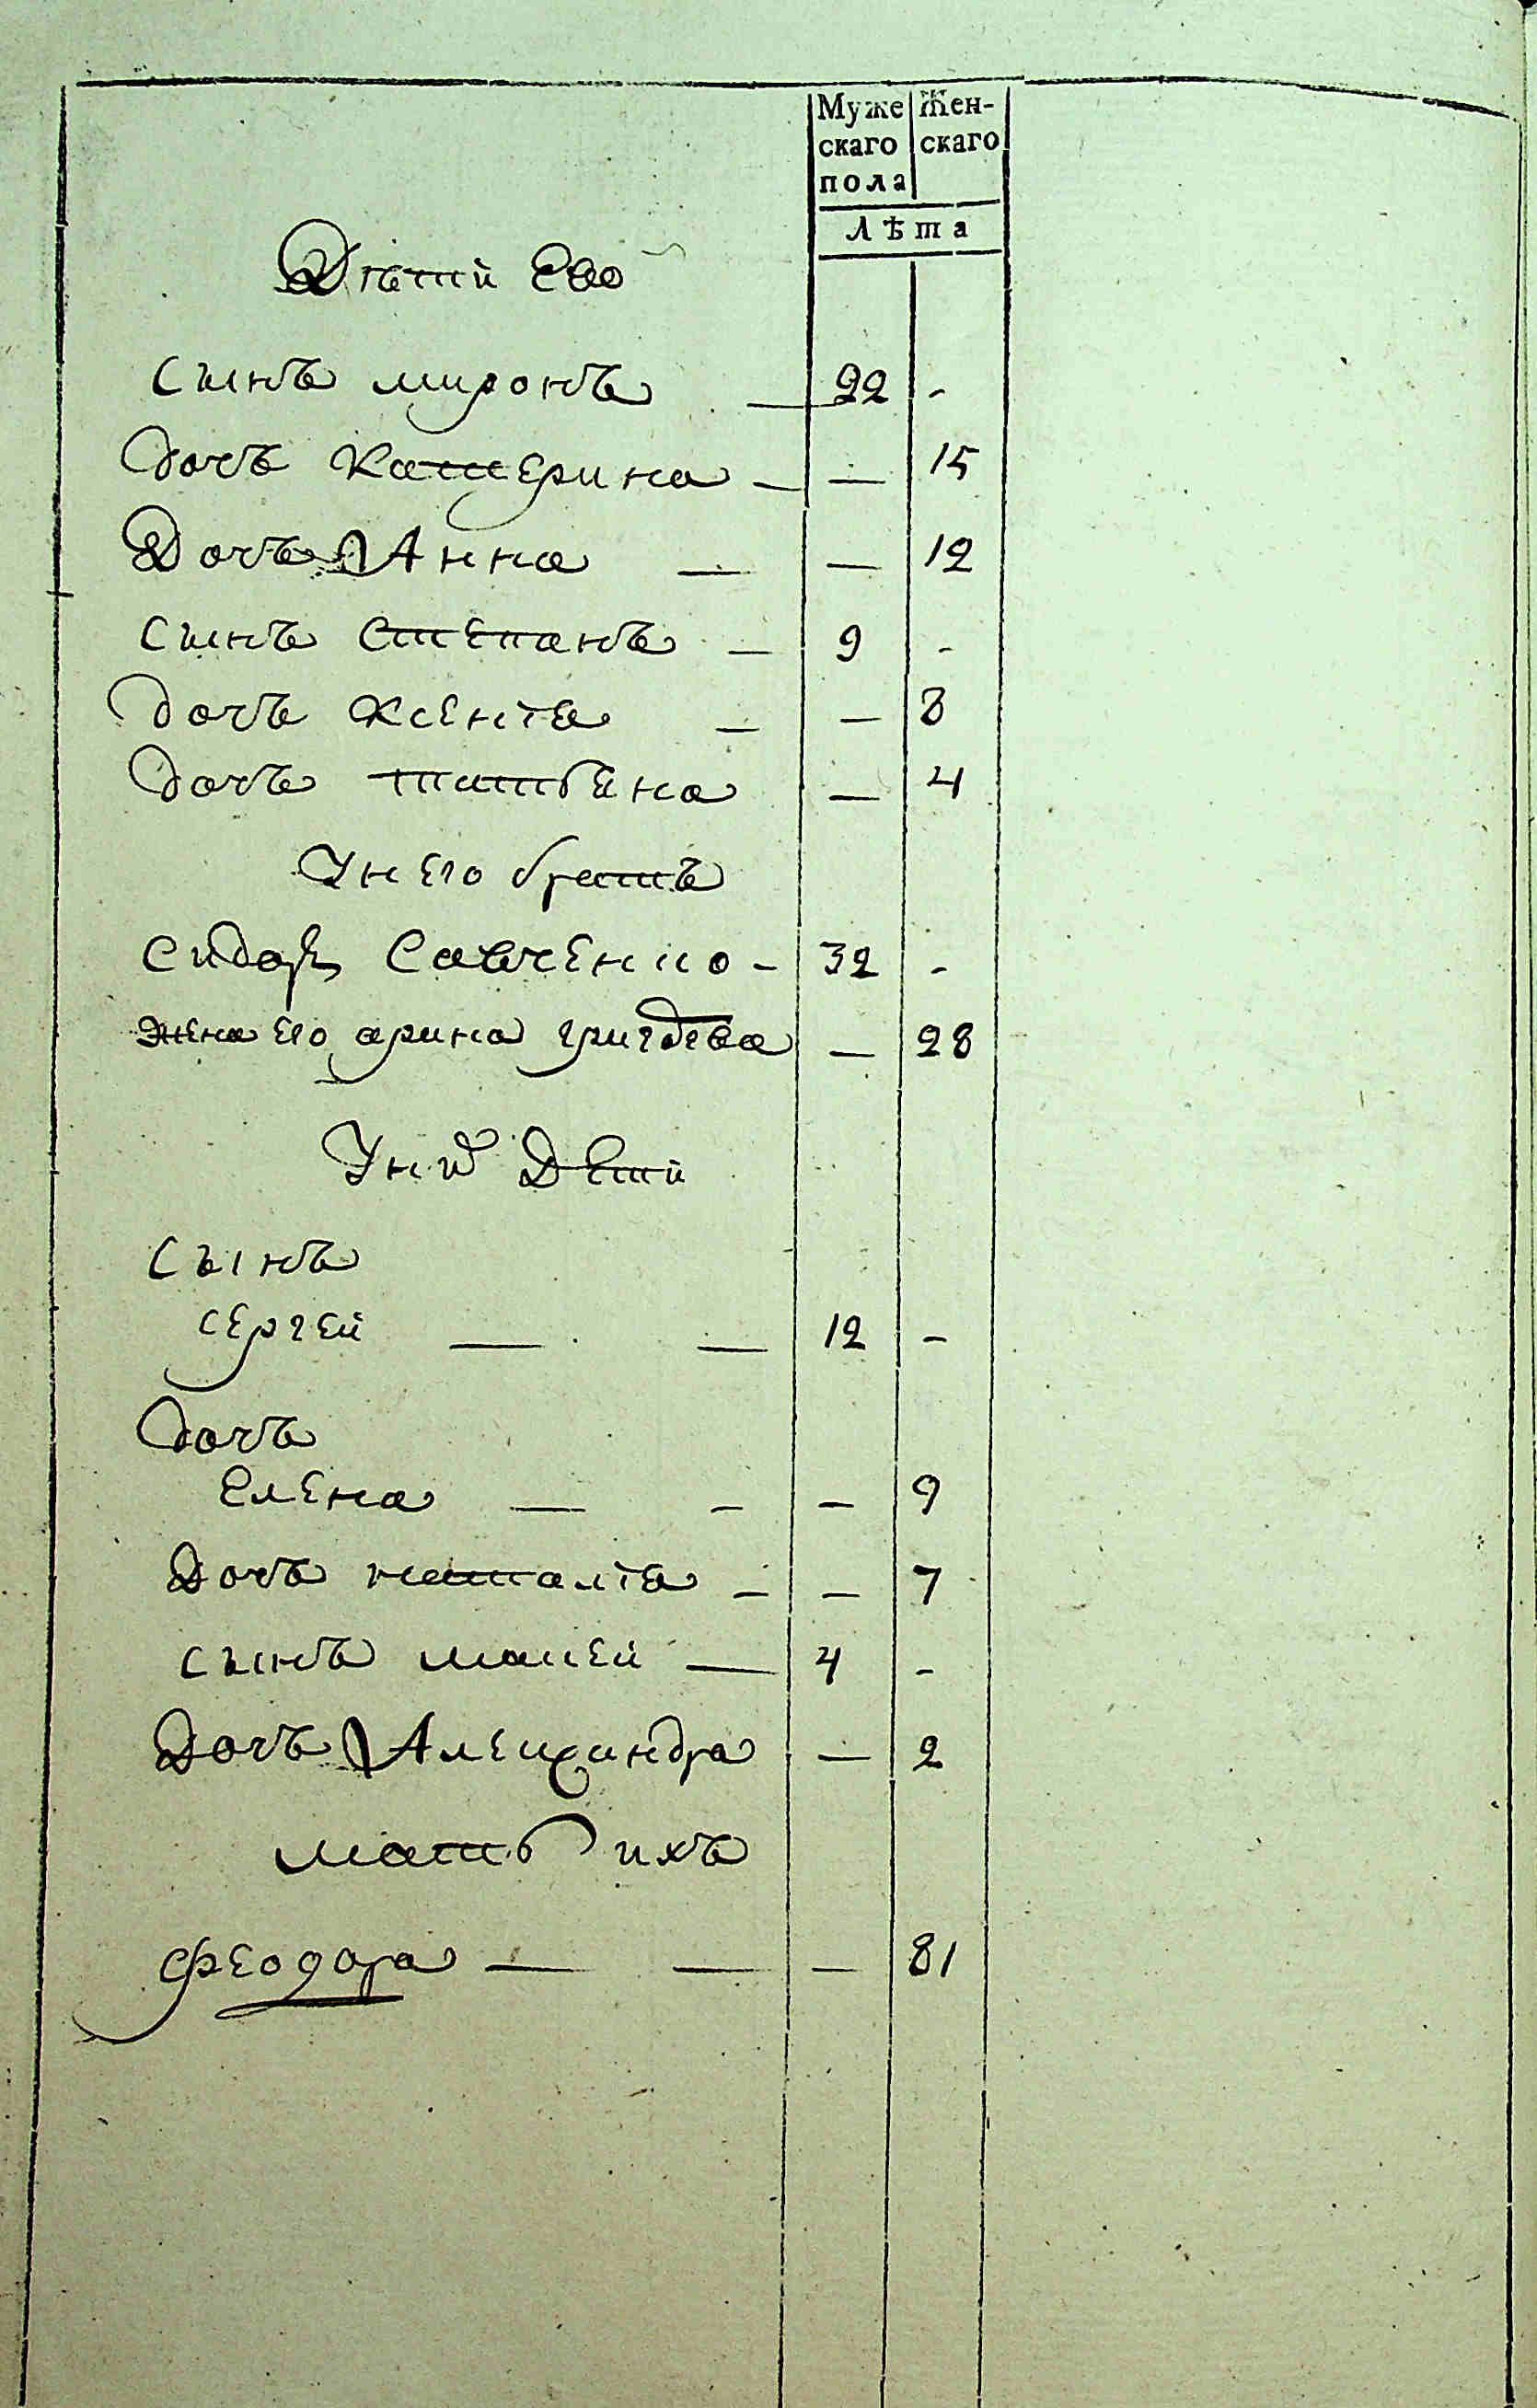 Муже Жен-
скаго скаго
пола
Лѣта
Дѣти Ево
сынъ миронъ — 22 -
дочъ Катерина — — 15
Дочъ Анна — — 12
сынъ Степанъ — 9 -
дочъ Ксенїя — — 8
дочъ татьяна — 4
У него братъ
сидоръ Савченко - 32 -
жена его арина — 28
У них Дети
Сынъ
сергей — — 12 -
дочъ
Елена — - — 9
Дочъ наталїя — — 7
сынъ моисей — 4 -
Дочъ Алеѯандра — 2
мать ихъ
феодора — — — 81